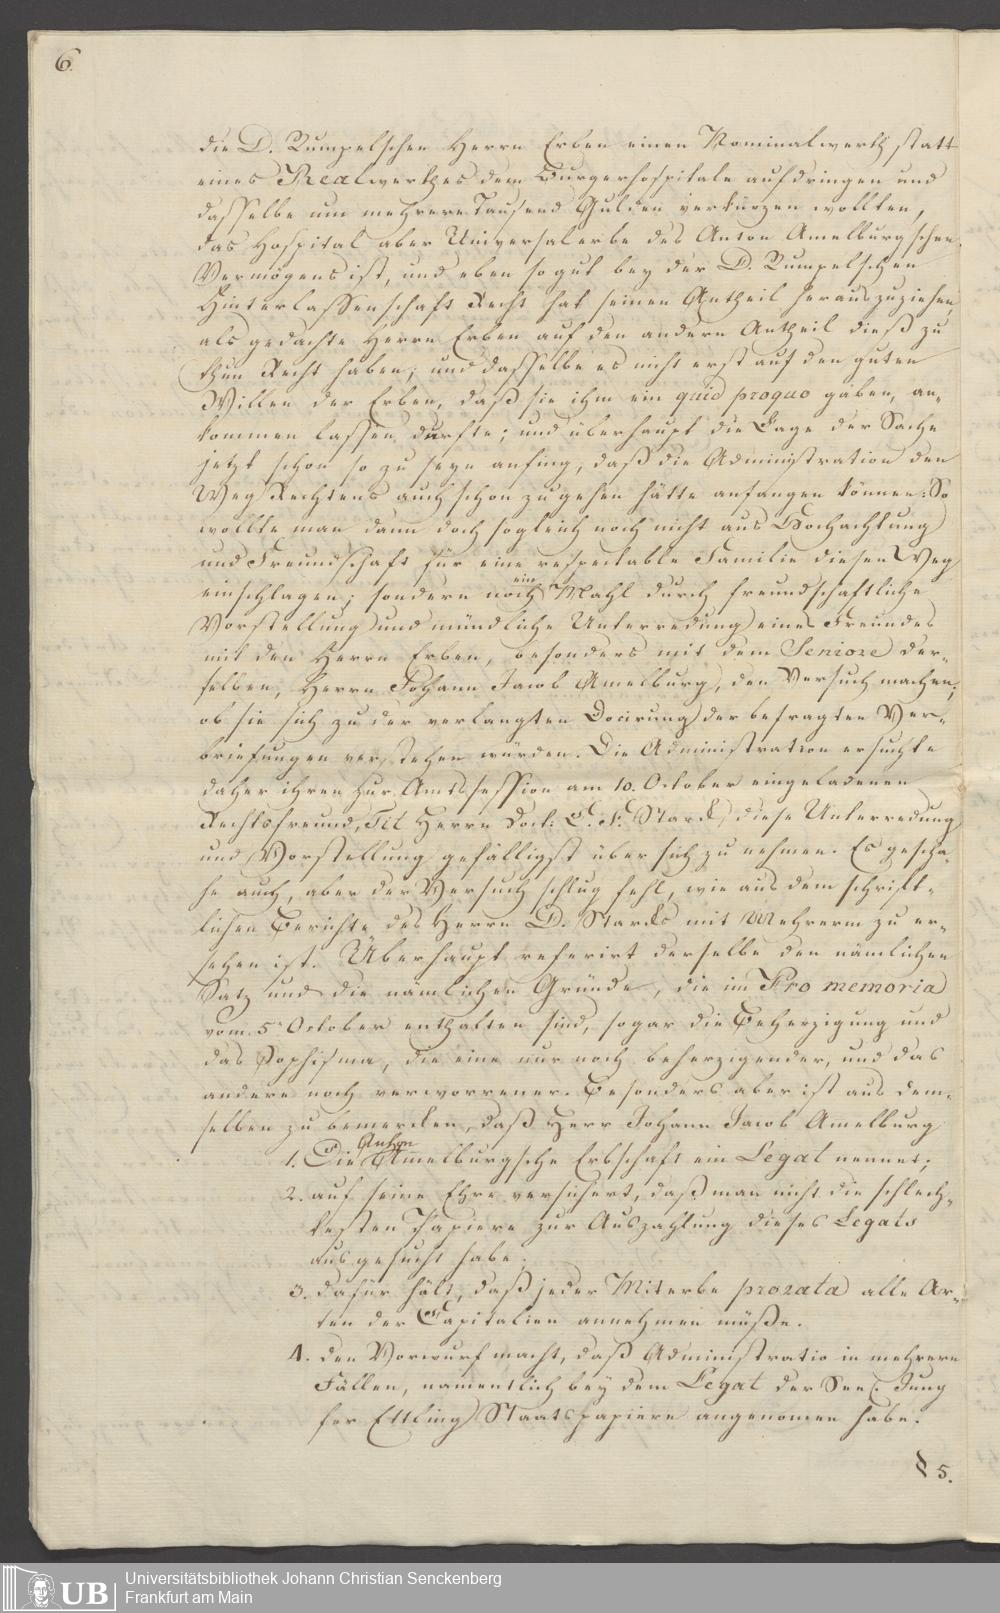 6.
die D. Rumpelschen Herrn Erben einen Nominalwerth statt
eines Realwerthes dem Burgerhospitale aufdringen und
dasselbe um mehrere Tausend Gulden verkürzen wollten,
das Hospital aber Universalerbe des Anton Amelburgschen
Vermögens ist, und eben so gut bey der D. Rumpelschen
Hinterlassenschaft Recht hat seinen Antheil herauszuziehen,
als gedachte Herrn Erben auf den andern Antheil dieß zu
thun Recht haben; und dasselbe es nicht erst auf den guten
Willen der Erben, daß sie ihm ein quid proquo gäben, an-
kommen lassen durfte; und überhaupt die Lage der Sache
jetzt schon so zu seyn anfing, daß die Administration den
Weg Rechtens auch schon zu gehen hätte anfangen können: So
wollte man dann doch sogleich noch nicht aus Hochachtung
und Freundschaft für eine respectable Familie diesen Weg
einschlagen; sondern noch ein Mahl durch freundschaftliche
Vorstellung und mündliche Unterredung eines Freundes
mit den Herrn Erben, besonders mit dem Seniore der-
selben, Herrn Johann Jacob Amelburg, den Versuch machen;
ob sie sich zu der verlangten Docirung der befragten Ver-
briefungen verstehen würden. Die Administration ersuchte
daher ihren zur Amtssession am 10. October eingeladenen
Rechtsfreund, Tit Herrn Doct: Starck, diese Unterredung
und Vorstellung gefälligst über sich zu nehmen. Es gescha-
he auch, aber der Versuch schlug fehl, wie aus dem schrift-
lichen Berichte des Herrn D. Starcks mit Mehrerm zu er-
sehen ist. Überhaupt referirt derselbe den nämlichen
Satz und die nämlichen Gründe, die im Pro memoria
vom 5. October enthalten sind, sogar die Beherzigung und
das Sophisma, die eine nur noch beherzigender, und das
andere noch verworrener. Besonders aber ist aus dem-
selben zu bemercken, daß Herr Johann Jacob Amelburg
1. Die Anton Amelburgsche Erbschaft ein Legat nennet;
2. auf seine Ehre versichert, daß man nicht die schlech-
testen Papiere zur Auszahlung dieses Legats
ausgesucht habe;
3. dafür hält, daß jeder Miterbe prorata alle Ar-
ten der Capitalien annehmen müße.
4. den Vorwurf macht, daß Administratio in mehrern
Fällen, namentlich bey dem Legat der Seel. Jung
fer Ettling Staatspapiere angenomen habe.
§ 5.
UB Universitätsbibliothek Johann Christian Senckenberg
Frankfurt am Main